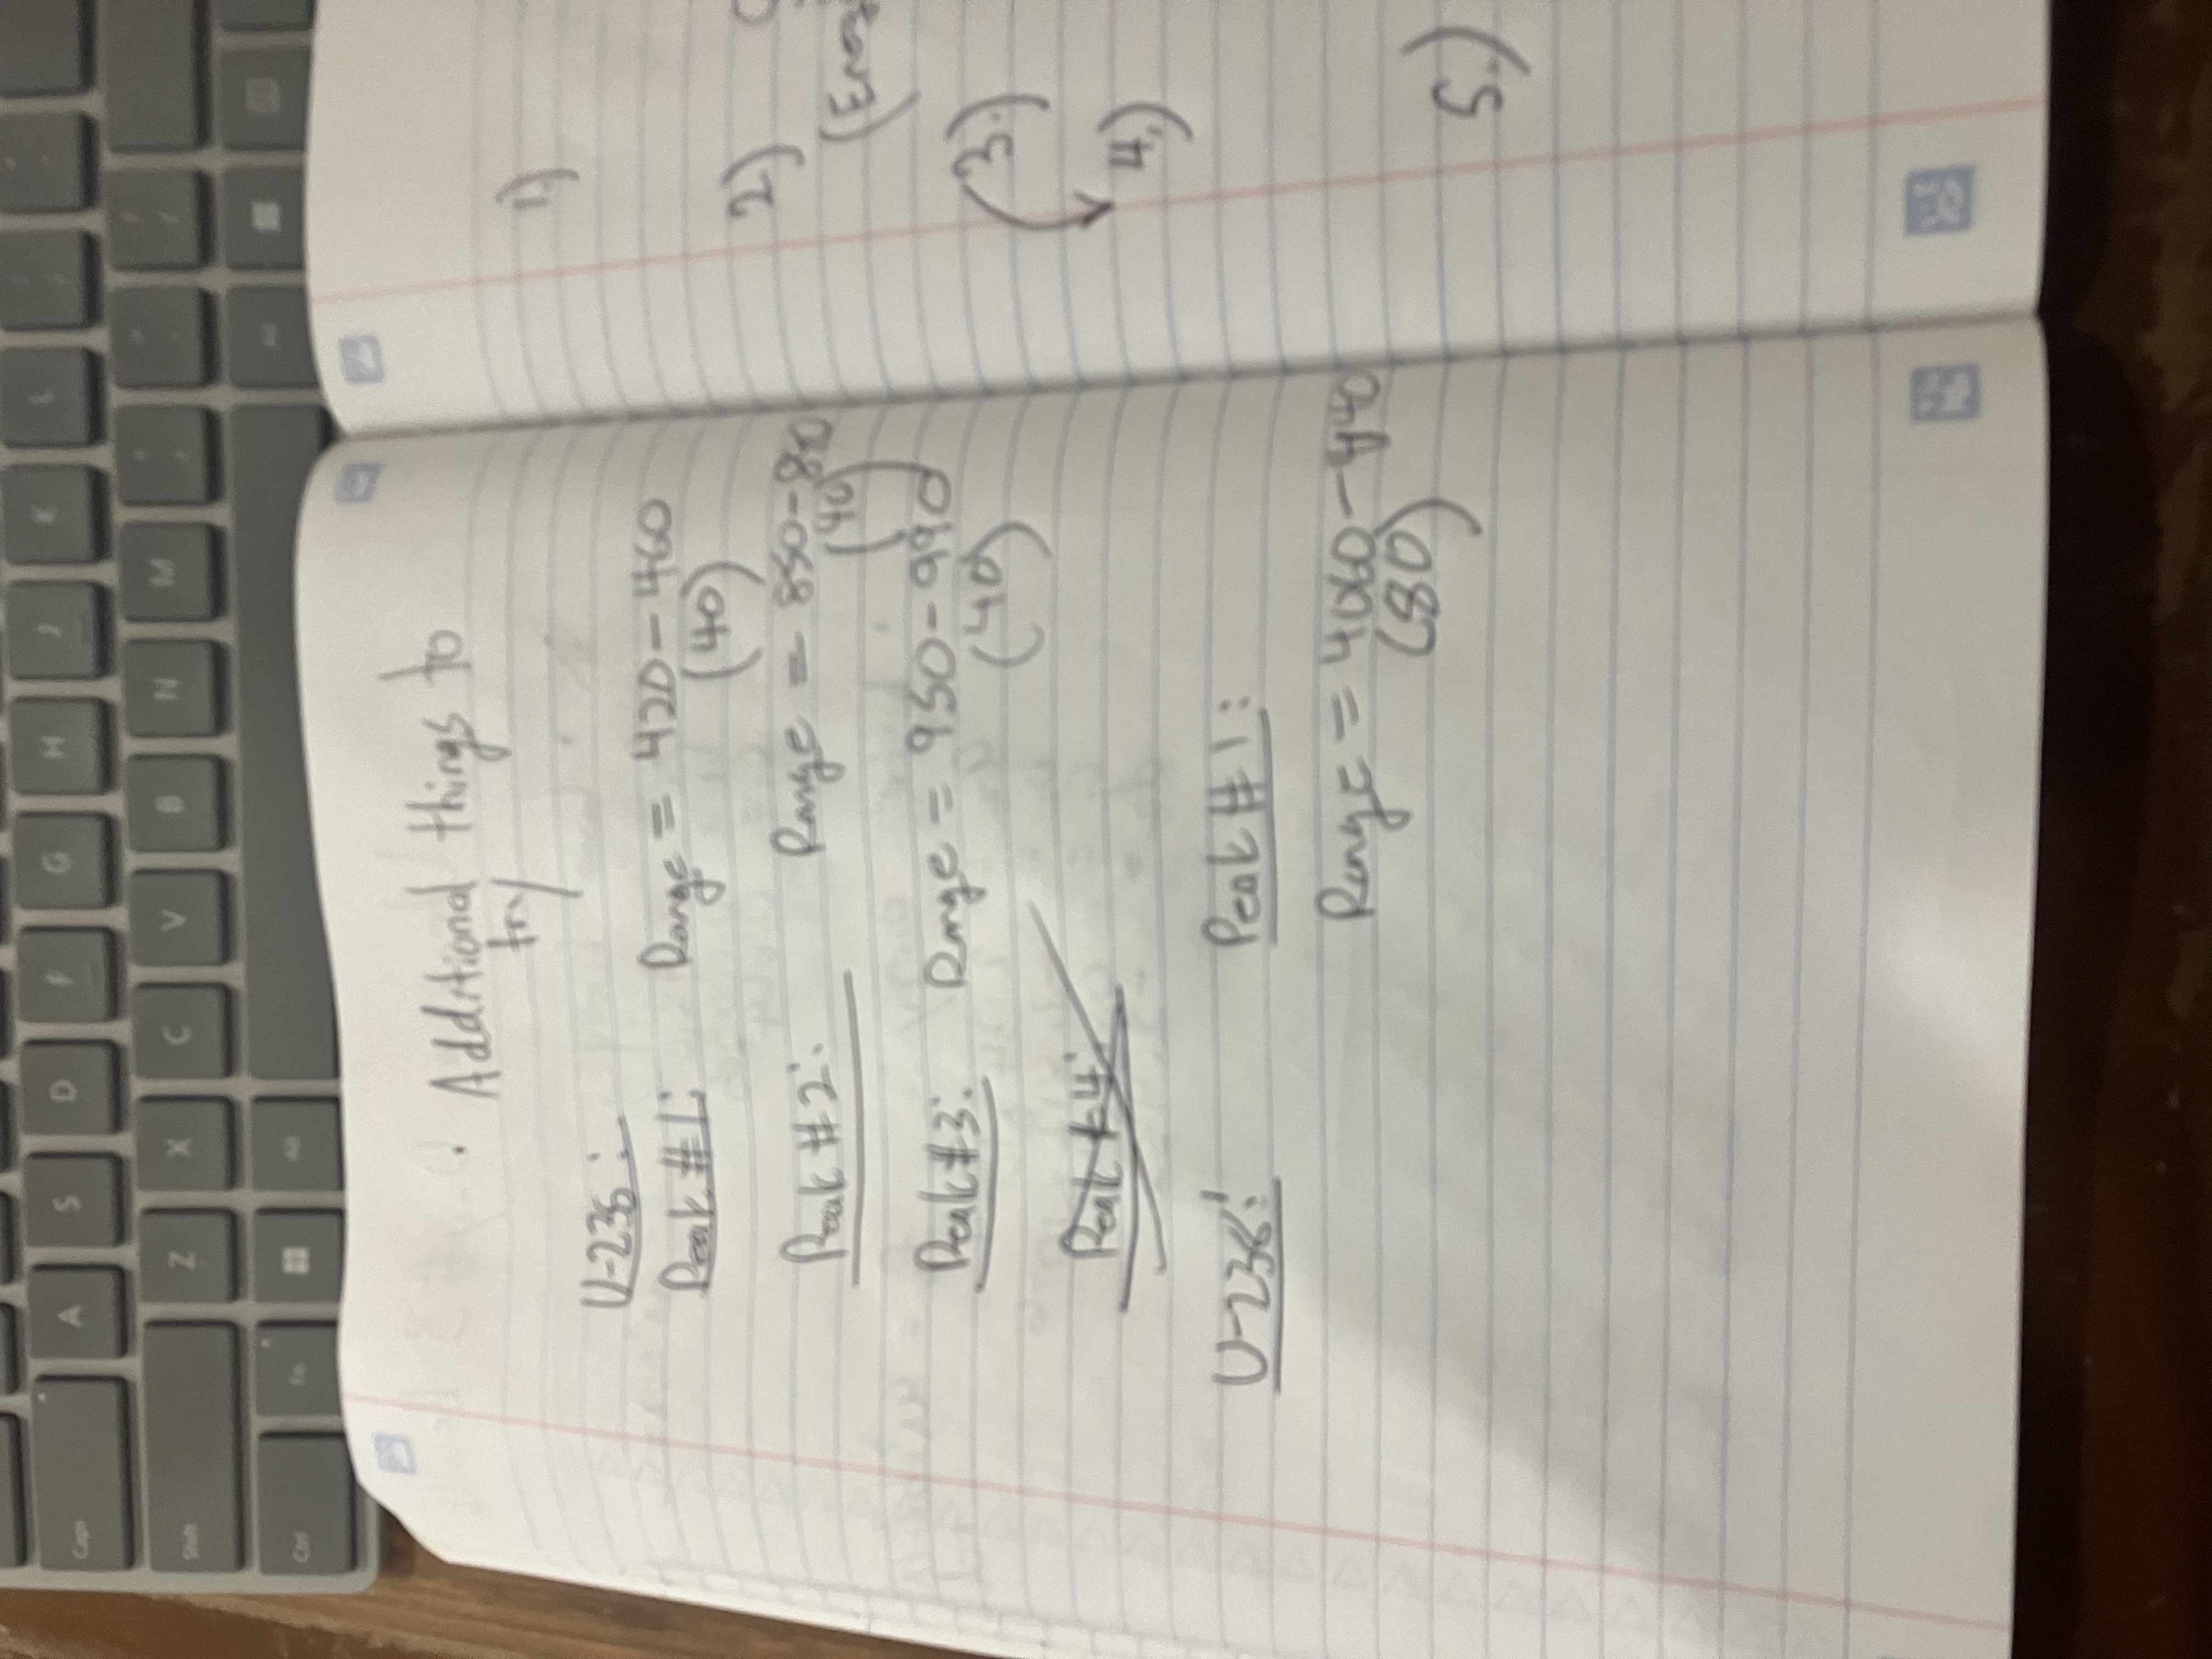 Caps A S D F G H J K L
Shift Z X C V B N M
Ctrl Fn Alt
· Additional things to
try
U-235:
Peak #1: Range = 420-460
(40)
Peak #2: Range = 850-890
(40)
Peak #3: Range = 950-990
(40)
Peak #4:
U-238: Peak #1:
Range = 4060-4140
(80)
1.)
2.)
(Energ
3.)
4.)
5.)